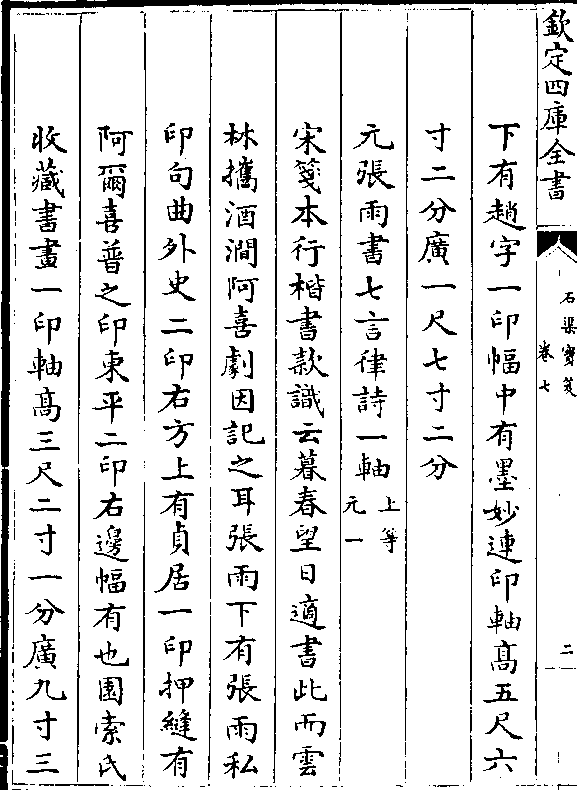 欽定四庫全書
石渠寶笈
卷七
二
下有趙字一印幅中有墨妙連印軸髙五尺六
寸二分廣一尺七寸二分
元張雨書七言律詩一軸 上等元一
宋箋本行楷書款識云暮春望日適書此而雲
林攜酒澗阿喜劇因記之耳張雨下有張雨私
印句曲外史二印右方上有貞居一印押縫有
阿爾喜普之印東平二印右邊幅有也園索氏
收藏書畫一印軸髙三尺二寸一分廣九寸三